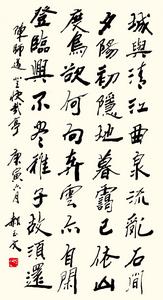 城與清江曲泉流亂石間
夕陽初隱地暮靄已依山
度鳥欲何向奔雲亦自閑
登臨興不尽稚子故須還
陳師道登快哉亭 庚寅六月